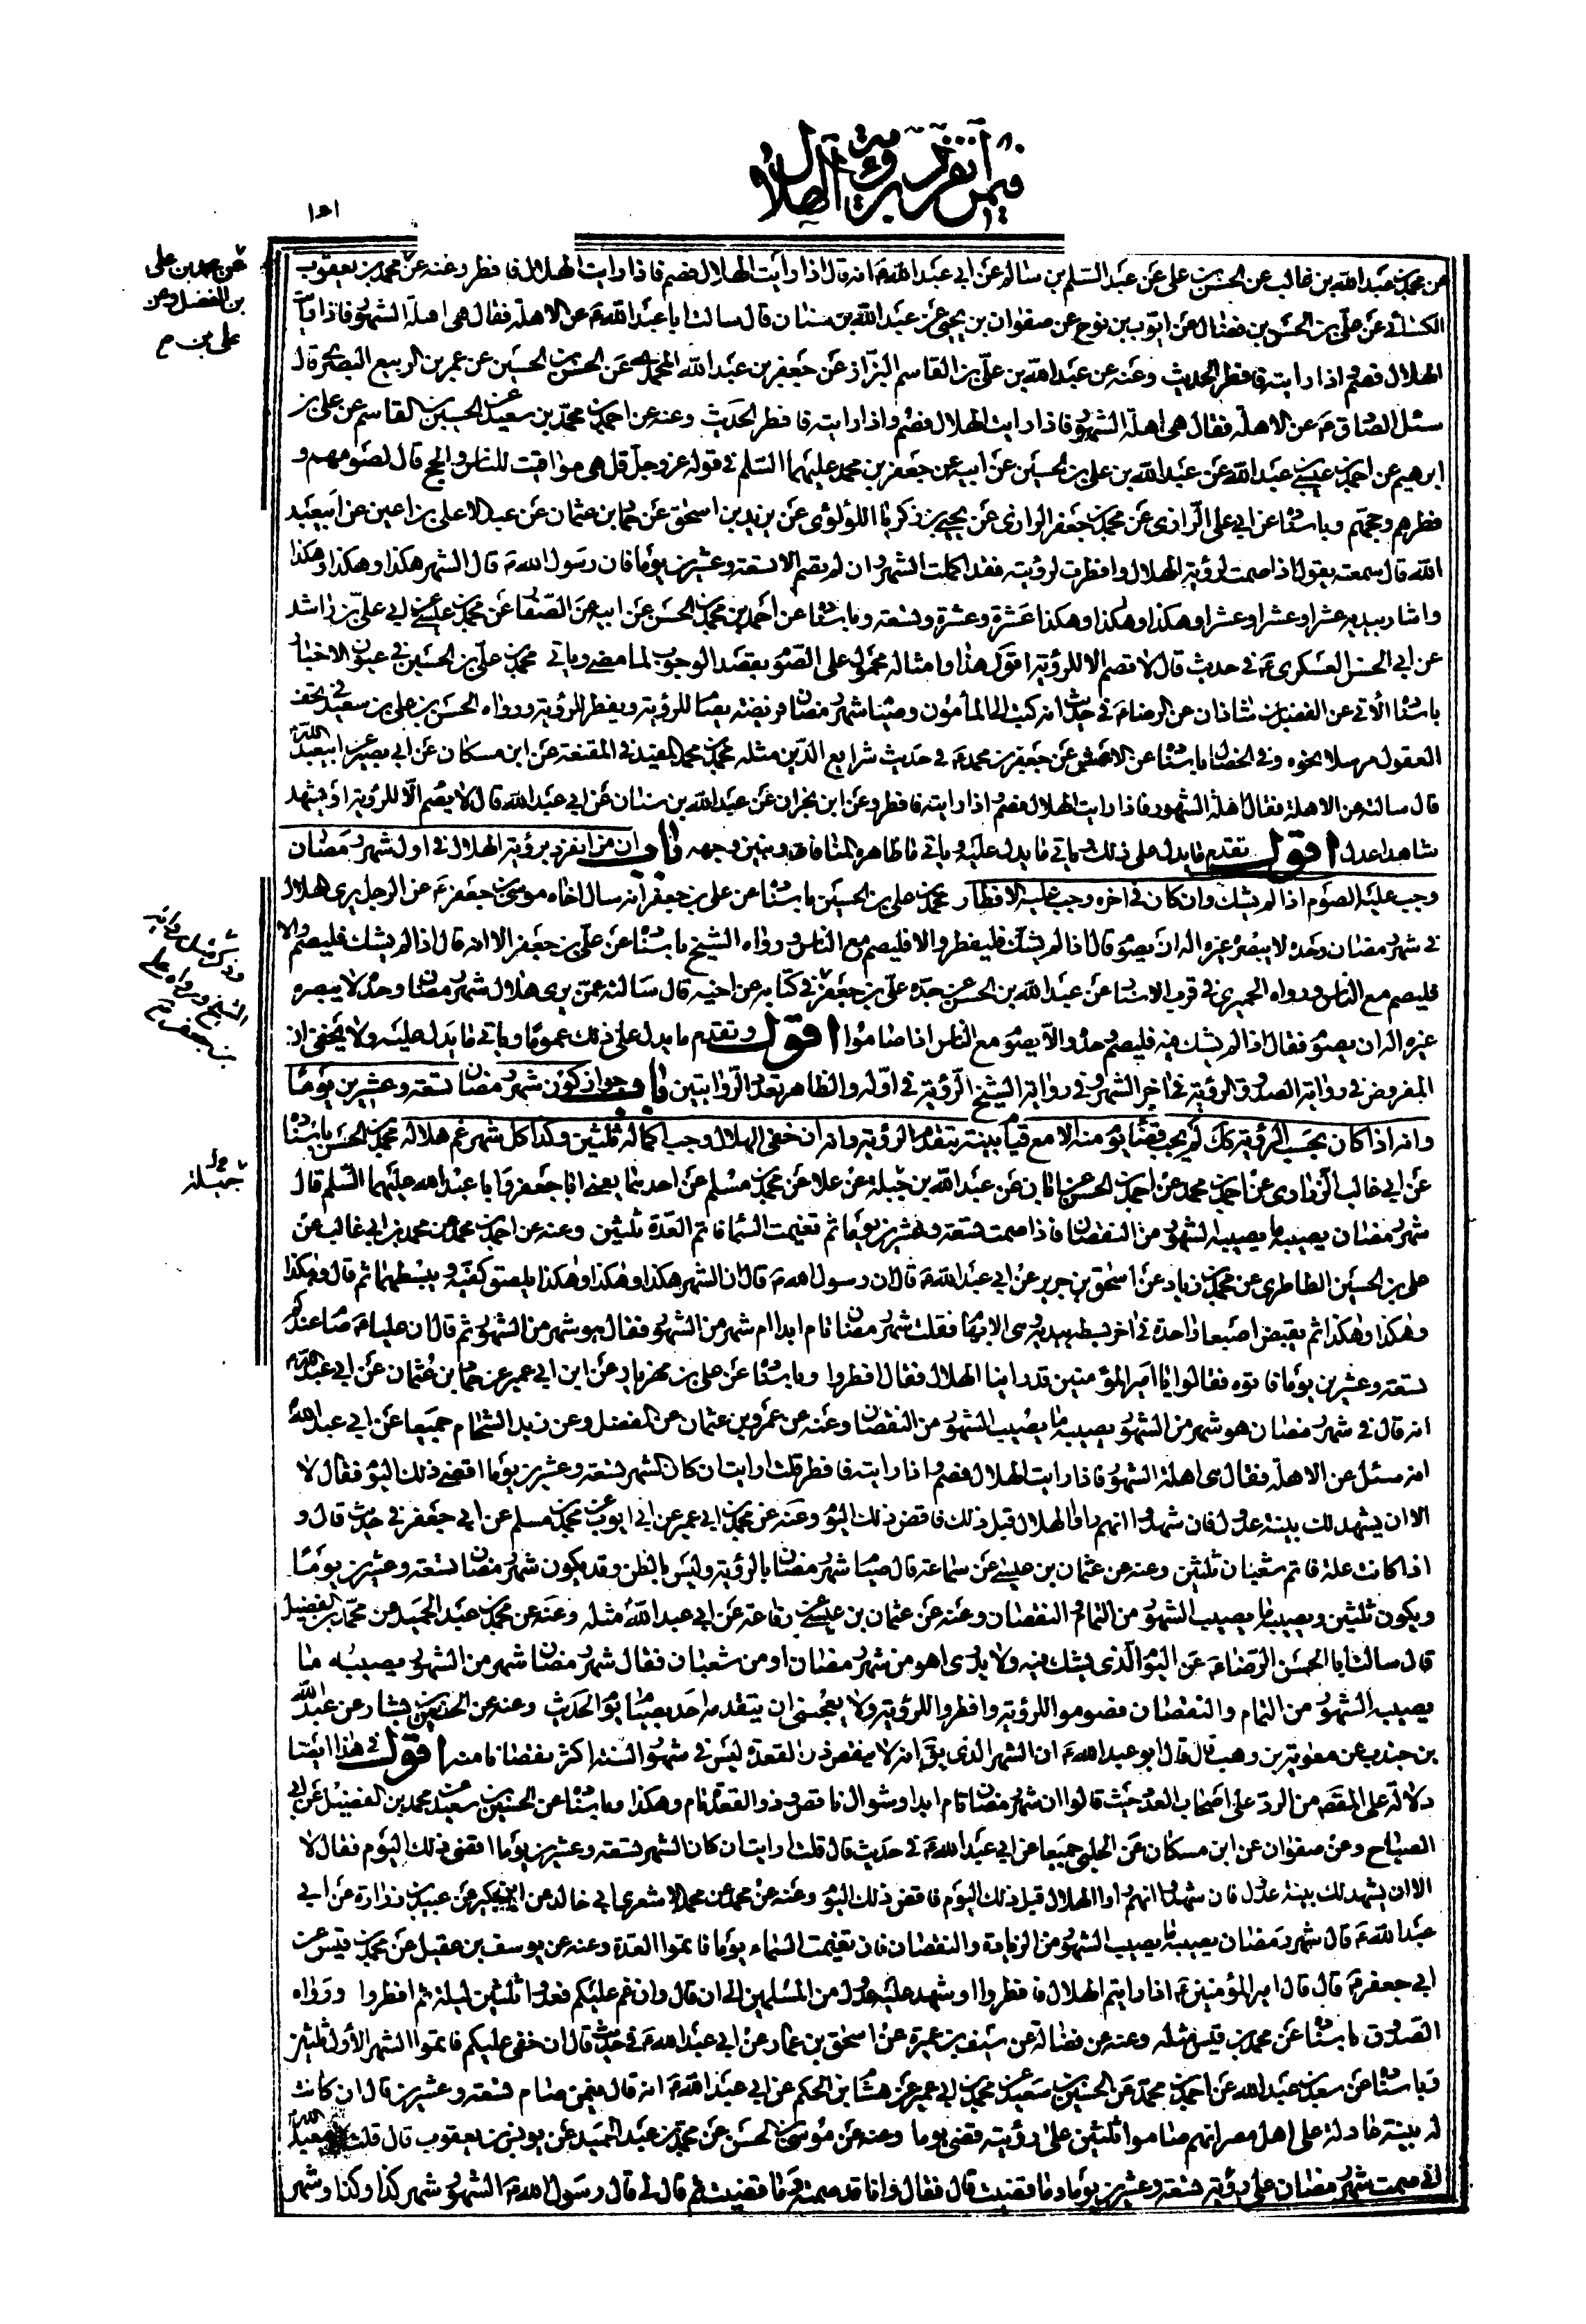 فيمن انفرد برؤية الهلال
١٥١
عن محمد بن عبد الله بن غالب عن الحسن بن على عن عبد السلم بن سالم عن ابى عبد الله ع انه قال اذا رايت الهلال فصم فاذا رايت الهلال فافطر وعنه عن محمد بن يعقوب
الكسائى عن على بن الحسن بن فضال عن ايوب بن نوح عن صفوان بن يحيى عن عبد الله بن سنان قال سالت ابا عبد الله ع عن الاهلة فقال هى اهلة الشهور فاذا رايت
الهلال فصم و اذا رايته فافطر الحديث وعنه عن عبد الله بن على بن القاسم البزاز عن جعفر بن عبد الله المحمدى عن الحسن بن الحسين عن عمر بن الربيع البصرى قال
سئل الصادق ع عن الاهلة فقال هى اهلة الشهور فاذا رايت الهلال فصم واذا رايته فافطر الحديث وعنه عن احمد بن محمد بن سعيد عن الحسين بن القاسم عن على بن
ابرهيم عن احمد بن عيسى بن عبد الله عن عبد الله بن على بن الحسين عن ابيه عن جعفر بن محمد عليهما السلم فى قوله عز وجل قل هى مواقيت للناس والحج قال لصومهم و
فطرهم وحجهم وباسناده عن ابى على الرازى عن محمد بن جعفر الرازى عن يحيى بن زكريا اللؤلؤى عن يزيد بن اسحق عن حماد بن عثمان عن عبد الاعلى بن اعين عن ابيعبد
الله قال سمعته يقول اذا صمت لرؤية الهلال وافطرت لرؤيته فقد اكملت الشهر وان لم تصم الا تسعة وعشرين يوما فان رسول الله ص قال الشهر هكذا وهكذا وهكذا
واشار بيديه عشرا وعشرا وعشرا وهكذا وهكذا وهكذا عشرة وعشرة وتسعة وباسناده عن احمد بن محمد بن الحسن عن ابيه عن الصفار عن محمد بن عيسى عن ابى على بن راشد
عن ابى الحسن العسكرى ع فى حديث قال لا تصم الا للرؤية اقول هذا وامثاله محمول على الصوم بقصد الوجوب لما مضى وياتى محمد بن على بن الحسين فى عيون الاخبار
باسناده الاتى عن الفضل بن شاذان عن الرضا ع فى حديث انه كتب الى المأمون وصيام شهر رمضان فريضة يصام للرؤية ويفطر للرؤية ورواه الحسن بن على بن سعيد فى تحف
العقول مرسلا نحوه وفى الخصال باسناده عن الاعمش عن جعفر بن محمد ع فى حديث شرايع الدين مثله محمد بن محمد المفيد فى المقنعة عن ابن مسكان عن ابى بصير عن ابيعبد الله
قال سالته عن الاهلة فقال اهلة الشهور فاذا رايت الهلال فصم و اذا رايته فافطر وعن ابن نجران عن عبد الله بن سنان عن ابى عبد الله قال لا يصم الا للرؤية او يشهد
شاهدا عدل اقول تقدم ما يدل على ذلك وياتى ما يدل عليه وياتى ما ظاهره المنافاة ونبين وجهه باب ان من انفرد برؤية الهلال فى اول شهر رمضان
وجب عليه الصوم اذا لم يشك وان كان فى اخره وجب عليه الافطار محمد بن على بن الحسين باسناده عن على بن جعفر انه سال اخاه موسى بن جعفر ع عن الرجل يرى هلال
فى شهر رمضان وحده لا يبصره غيره اله ان يصوم قال اذا لم يشك فليفطر والا فليصم مع الناس ورواه الشيخ باسناده عن على بن جعفر الا انه قال اذا لم يشك فليصم والا
فليصم مع الناس ورواه الحميرى فى قرب الاسناد عن عبد الله بن الحسن عن جده على بن جعفر فى كتابه عن اخيه قال سالته عمن يرى هلال شهر رمضان وحده لا يبصره
غيره اله ان يصوم فقال اذا لم يشك فيه فليصم وحده والا يصوم مع الناس اذا صاموا اقول وتقدم ما يدل على ذلك عموما وياتى ما يدل عليه ولا يخفى ان
المفروض فى رواية الصدوق الرؤية فى اخر الشهر وفى رواية الشيخ الرؤية فى اوله والظاهر تعدد الروايتين باب جواز كون شهر رمضان تسعة وعشرين يوما
وانه اذا كان بحسب الرؤية كك لم يجب قضاء يوم منه الا مع قيام بينة بتقدم الرؤية وانه ان خفى الهلال وجب اكماله ثلثين وكذا كل شهر غم هلاله محمد بن الحسن باسناده
عن ابى غالب الزرارى عن احمد بن محمد عن احمد بن الحسن عن ابان عن عبد الله بن جبلة عن علا عن محمد بن مسلم عن احدهما يعنى ابا جعفر وابا عبد الله عليهما السلم قال
شهر رمضان يصيبه ما يصيب الشهور من النقصان فاذا صمت تسعة وعشرين يوما ثم تغيمت السماء فاتم العدة ثلثين وعنه عن احمد بن محمد عن محمد بن ابى غالب عن
على بن الحسين الطاطرى عن محمد بن زياد عن اسحق بن جرير عن ابى عبد الله ع قال ان رسول الله ص قال ان الشهر هكذا وهكذا وهكذا يلصق كفيه و يبسطهما ثم قال وهكذا
وهكذا وهكذا ثم يقبض اصبعا واحدة فى اخر بسطه بيديه وهى الابهام فقلت شهر رمضان تام ابدا ام شهر من الشهور فقال هو شهر من الشهور ثم قال ان عليا ع صام عندكم
تسعة وعشرين يوما فاتوه فقالوا يا امير المؤمنين قد راينا الهلال فقال افطروا وباسناده عن على بن مهزيار عن ابن ابى عمير عن حماد بن عثمان عن ابى عبد الله
انه قال فى شهر رمضان هو شهر من الشهور يصيبه ما يصيب الشهور من النقصان وعنه عن عمرو بن عثمان عن المفضل وعن زيد الشحام جميعا عن ابى عبد الله
انه سئل عن الاهلة فقال هى اهلة الشهور فاذا رايت الهلال فصم و اذا رايته فافطر قلت ارايت ان كان الشهر تسعة وعشرين يوما اقضى ذلك اليوم فقال لا
الا ان يشهد لك بينة عدول فان شهدوا انهم راوا الهلال قبل ذلك فاقض ذلك اليوم وعنه عن محمد بن ابى عمير عن ابى ايوب عن محمد بن مسلم عن ابى جعفر فى حديث قال و
اذا كانت علة فاتم شعبان ثلثين وعنه عن عثمان بن عيسى عن سماعة قال صيام شهر رمضان بالرؤية وليس بالظن وقد يكون شهر رمضان تسعة وعشرين يوما
ويكون ثلثين ويصيبه ما يصيب الشهور من التمام والنقصان وعنه عن عثمان بن عيسى عن رفاعة عن ابى عبد الله مثله وعنه عن محمد بن عبد الحميد عن محمد بن الفضيل
قال سالت ابا الحسن الرضا ع عن اليوم الذى يشك فيه ولا يدرى اهو من شهر رمضان او من شعبان فقال شهر رمضان شهر من الشهور يصيبه ما
يصيب الشهور من التمام والنقصان فصوموا للرؤية وافطروا للرؤية ولا يعجبنى ان يتقدمه احد بصيام يوم الحديث وعنه عن الحسين بن بشار عن عبد الله
بن جندب عن معوية بن وهب قال قال ابو عبد الله ع ان الشهر الذى يق انه لا ينقص ذو القعدة ليس فى شهور السنة اكثر نقصانا منه اقول فى هذا ايضا
دلالة على المقصد من الرد على اصحاب العدد حيث قالوا ان شهر رمضان تام ابدا وشوال ناقص و ذو القعدة تام وهكذا وباسناده عن الحسين بن سعيد عن محمد بن الفضيل عن ابى
الصباح وعن صفوان عن ابن مسكان عن الحلبى جميعا عن ابى عبد الله ع فى حديث قال قلت ارايت ان كان الشهر تسعة وعشرين يوما اقضى ذلك اليوم فقال لا
الا ان يشهد لك بينة عدول فان شهدوا انهم راوا الهلال قبل ذلك اليوم فاقض ذلك اليوم وعنه عن محمد عن محمد الاشعرى ابى خالد عن ابن بكير عن عبيد بن زرارة عن ابى
عبد الله ع قال شهر رمضان يصيبه ما يصيب الشهور من الزيادة والنقصان فان تغيمت السماء يوما فاتموا العدة وعنه عن يوسف بن عقيل عن محمد بن قيس عن
ابى جعفر ع قال قال امير المؤمنين ع اذا رايتم الهلال فافطروا او شهد عليه عدل من المسلمين الى ان قال وان غم عليكم فعدوا ثلثين ليلة ثم افطروا ورواه
الصدوق باسناده عن محمد بن قيس مثله وعنه عن فضالة عن سيف بن عميرة عن اسحق بن عمار عن ابى عبد الله ع فى حديث قال ان خفى عليكم فاتموا الشهر الاول ثلثين
وباسناده عن سعد بن عبد الله عن احمد بن محمد عن الحسين بن سعيد عن محمد بن ابى عمير عن هشام بن الحكم عن ابى عبد الله ع انه قال فيمن صام تسعة وعشرين قال ان كانت
له بينة عادلة على اهل مصر انهم صاموا ثلثين على رؤيته قضى يوما وعنه عن موسى بن الحسن عن محمد بن عبد الحميد عن يونس بن يعقوب قال قلت لابيعبد الله
انى صمت شهر رمضان على رؤية تسعة وعشرين يوما وما قضيت قال فقال وانا قد صمته وما قضيت ثم قال لى قال رسول الله ص الشهور شهر كذا وكذا وشهر
عن محمد بن على
بن الفضل وعن
على بن
جميلة